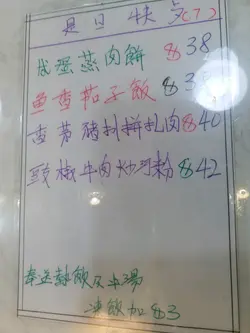 是日快歺(7)
咸蛋蒸肉餅 $38
鱼香茄子飯
香茅猪扒拼扎肉 $40
豉椒牛肉炒河粉 $42
奉送熱飲及湯
凍飲加 $3